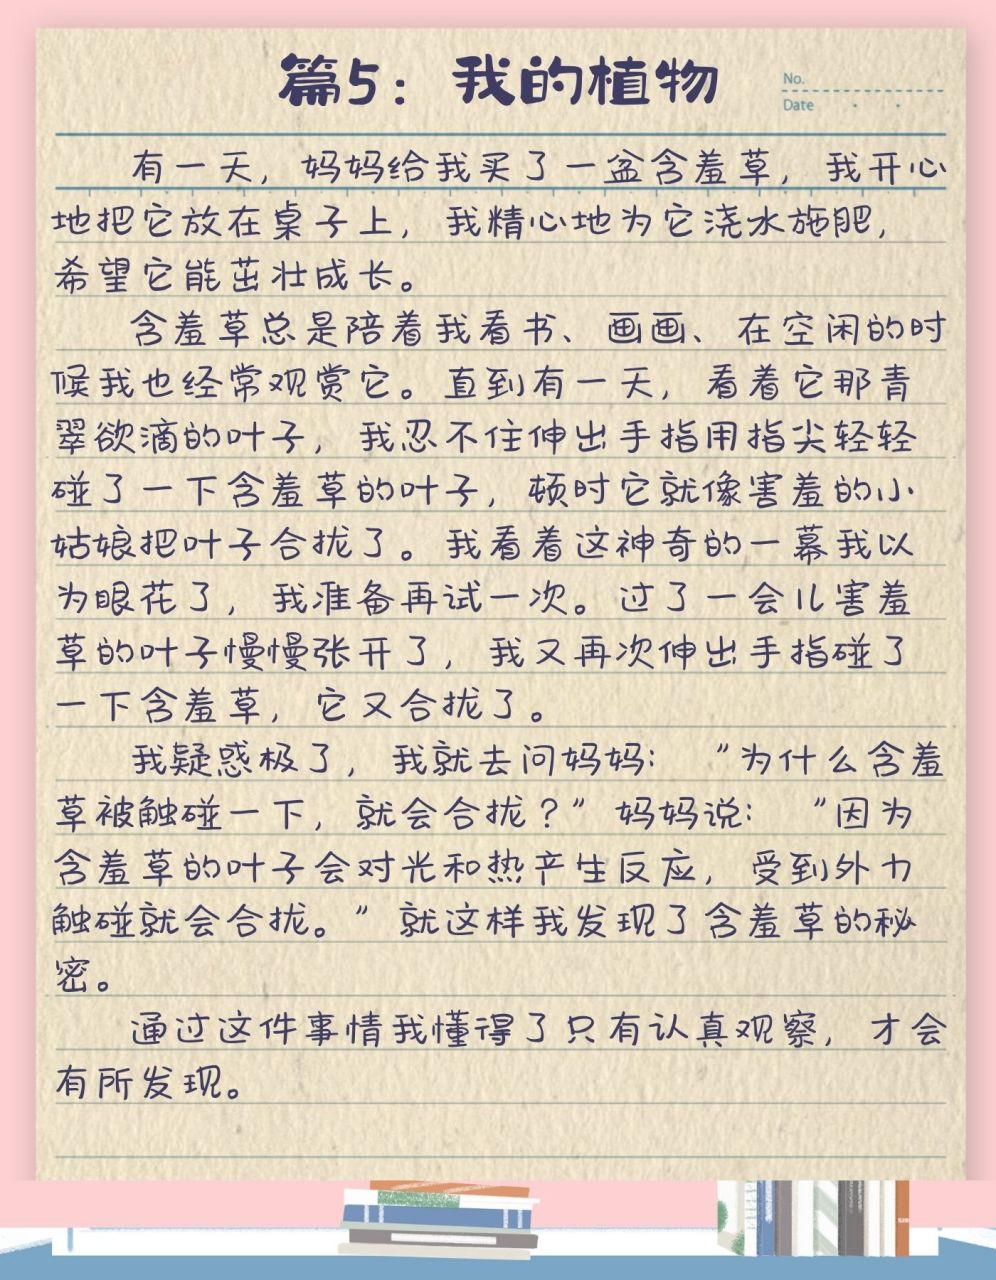 篇5：我的植物
No.
Date
有一天，妈妈给我买了一盆含羞草，我开心
地把它放在桌子上，我精心地为它浇水施肥，
希望它能茁壮成长。
含羞草总是陪着我看书、画画、在空闲的时
候我也经常观赏它。直到有一天，看着它那青
翠欲滴的叶子，我忍不住伸出手指用指尖轻轻
碰了一下含羞草的叶子，顿时它就像害羞的小
姑娘把叶子合拢了。我看着这神奇的一幕我以
为眼花了，我准备再试一次。过了一会儿害羞
草的叶子慢慢张开了，我又再次伸出手指碰了
一下含羞草，它又合拢了。
我疑惑极了，我就去问妈妈：“为什么含羞
草被触碰一下，就会合拢？”妈妈说：“因为
含羞草的叶子会对光和热产生反应，受到外力
触碰就会合拢。”就这样我发现了含羞草的秘
密。
通过这件事情我懂得了只有认真观察，才会
有所发现。